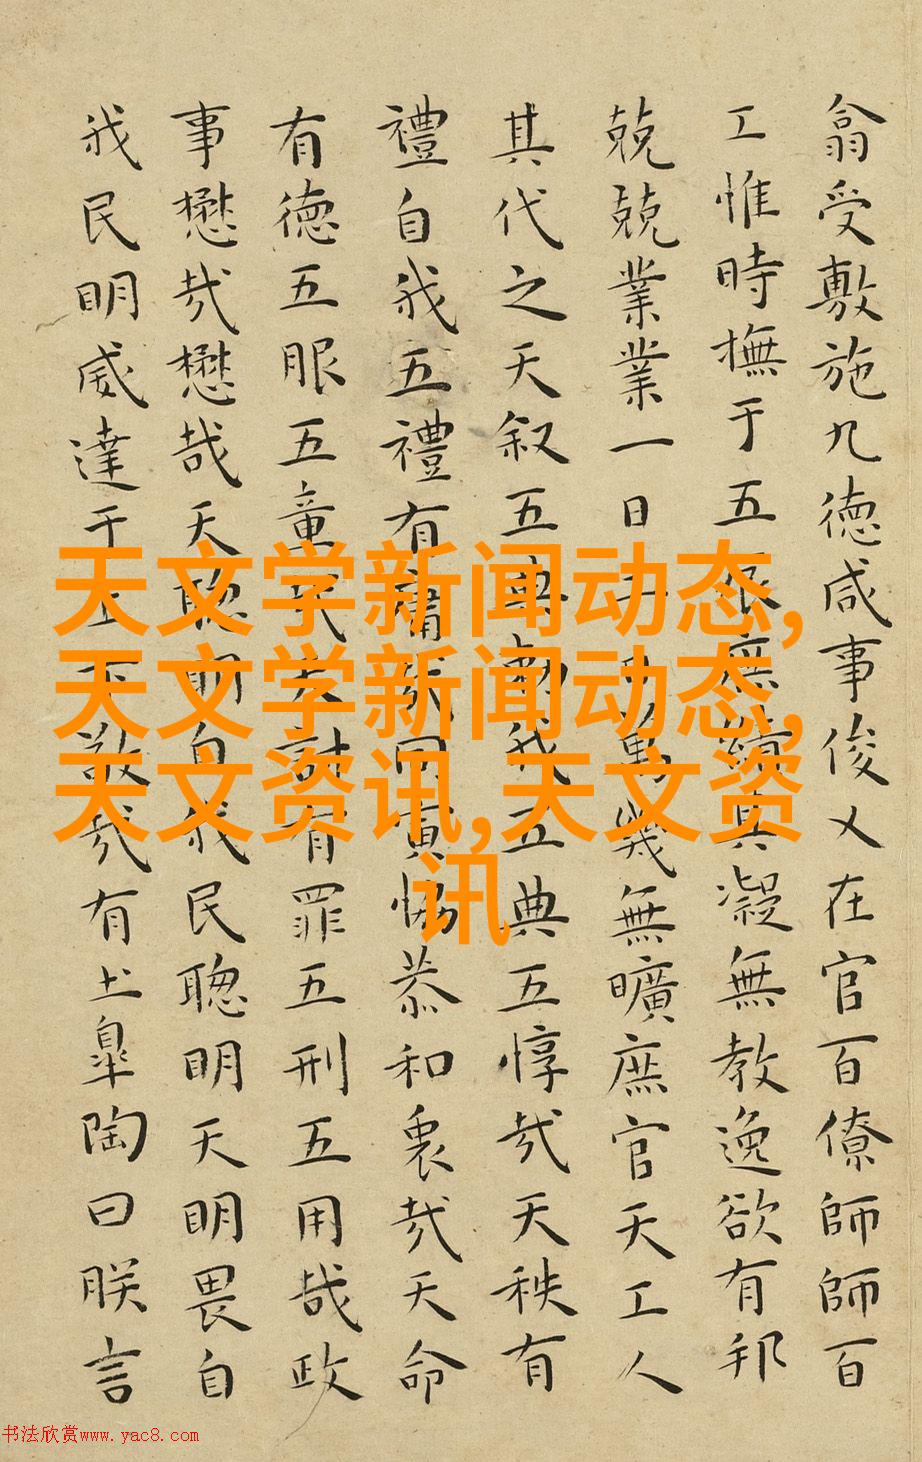 翕受敷施九德咸事俊乂在官百僚師師百
工惟時撫于五辰庶績其凝無教逸欲有邦
兢兢業業一日二日萬幾無曠庶官天工人
其代之天叙五典勑我五典五惇哉天秩有
禮自我五禮有庸哉同寅恊恭和衷哉天命
有德五服五章哉天討有罪五刑五用哉政
事懋哉懋哉天聰明自我民聰明天明畏自
我民明威達于上下敬哉有土皐陶曰朕言
天文学新闻动态,
天文学新闻动态,
天文资讯,天文资
讯
书法欣赏www.yac8.com